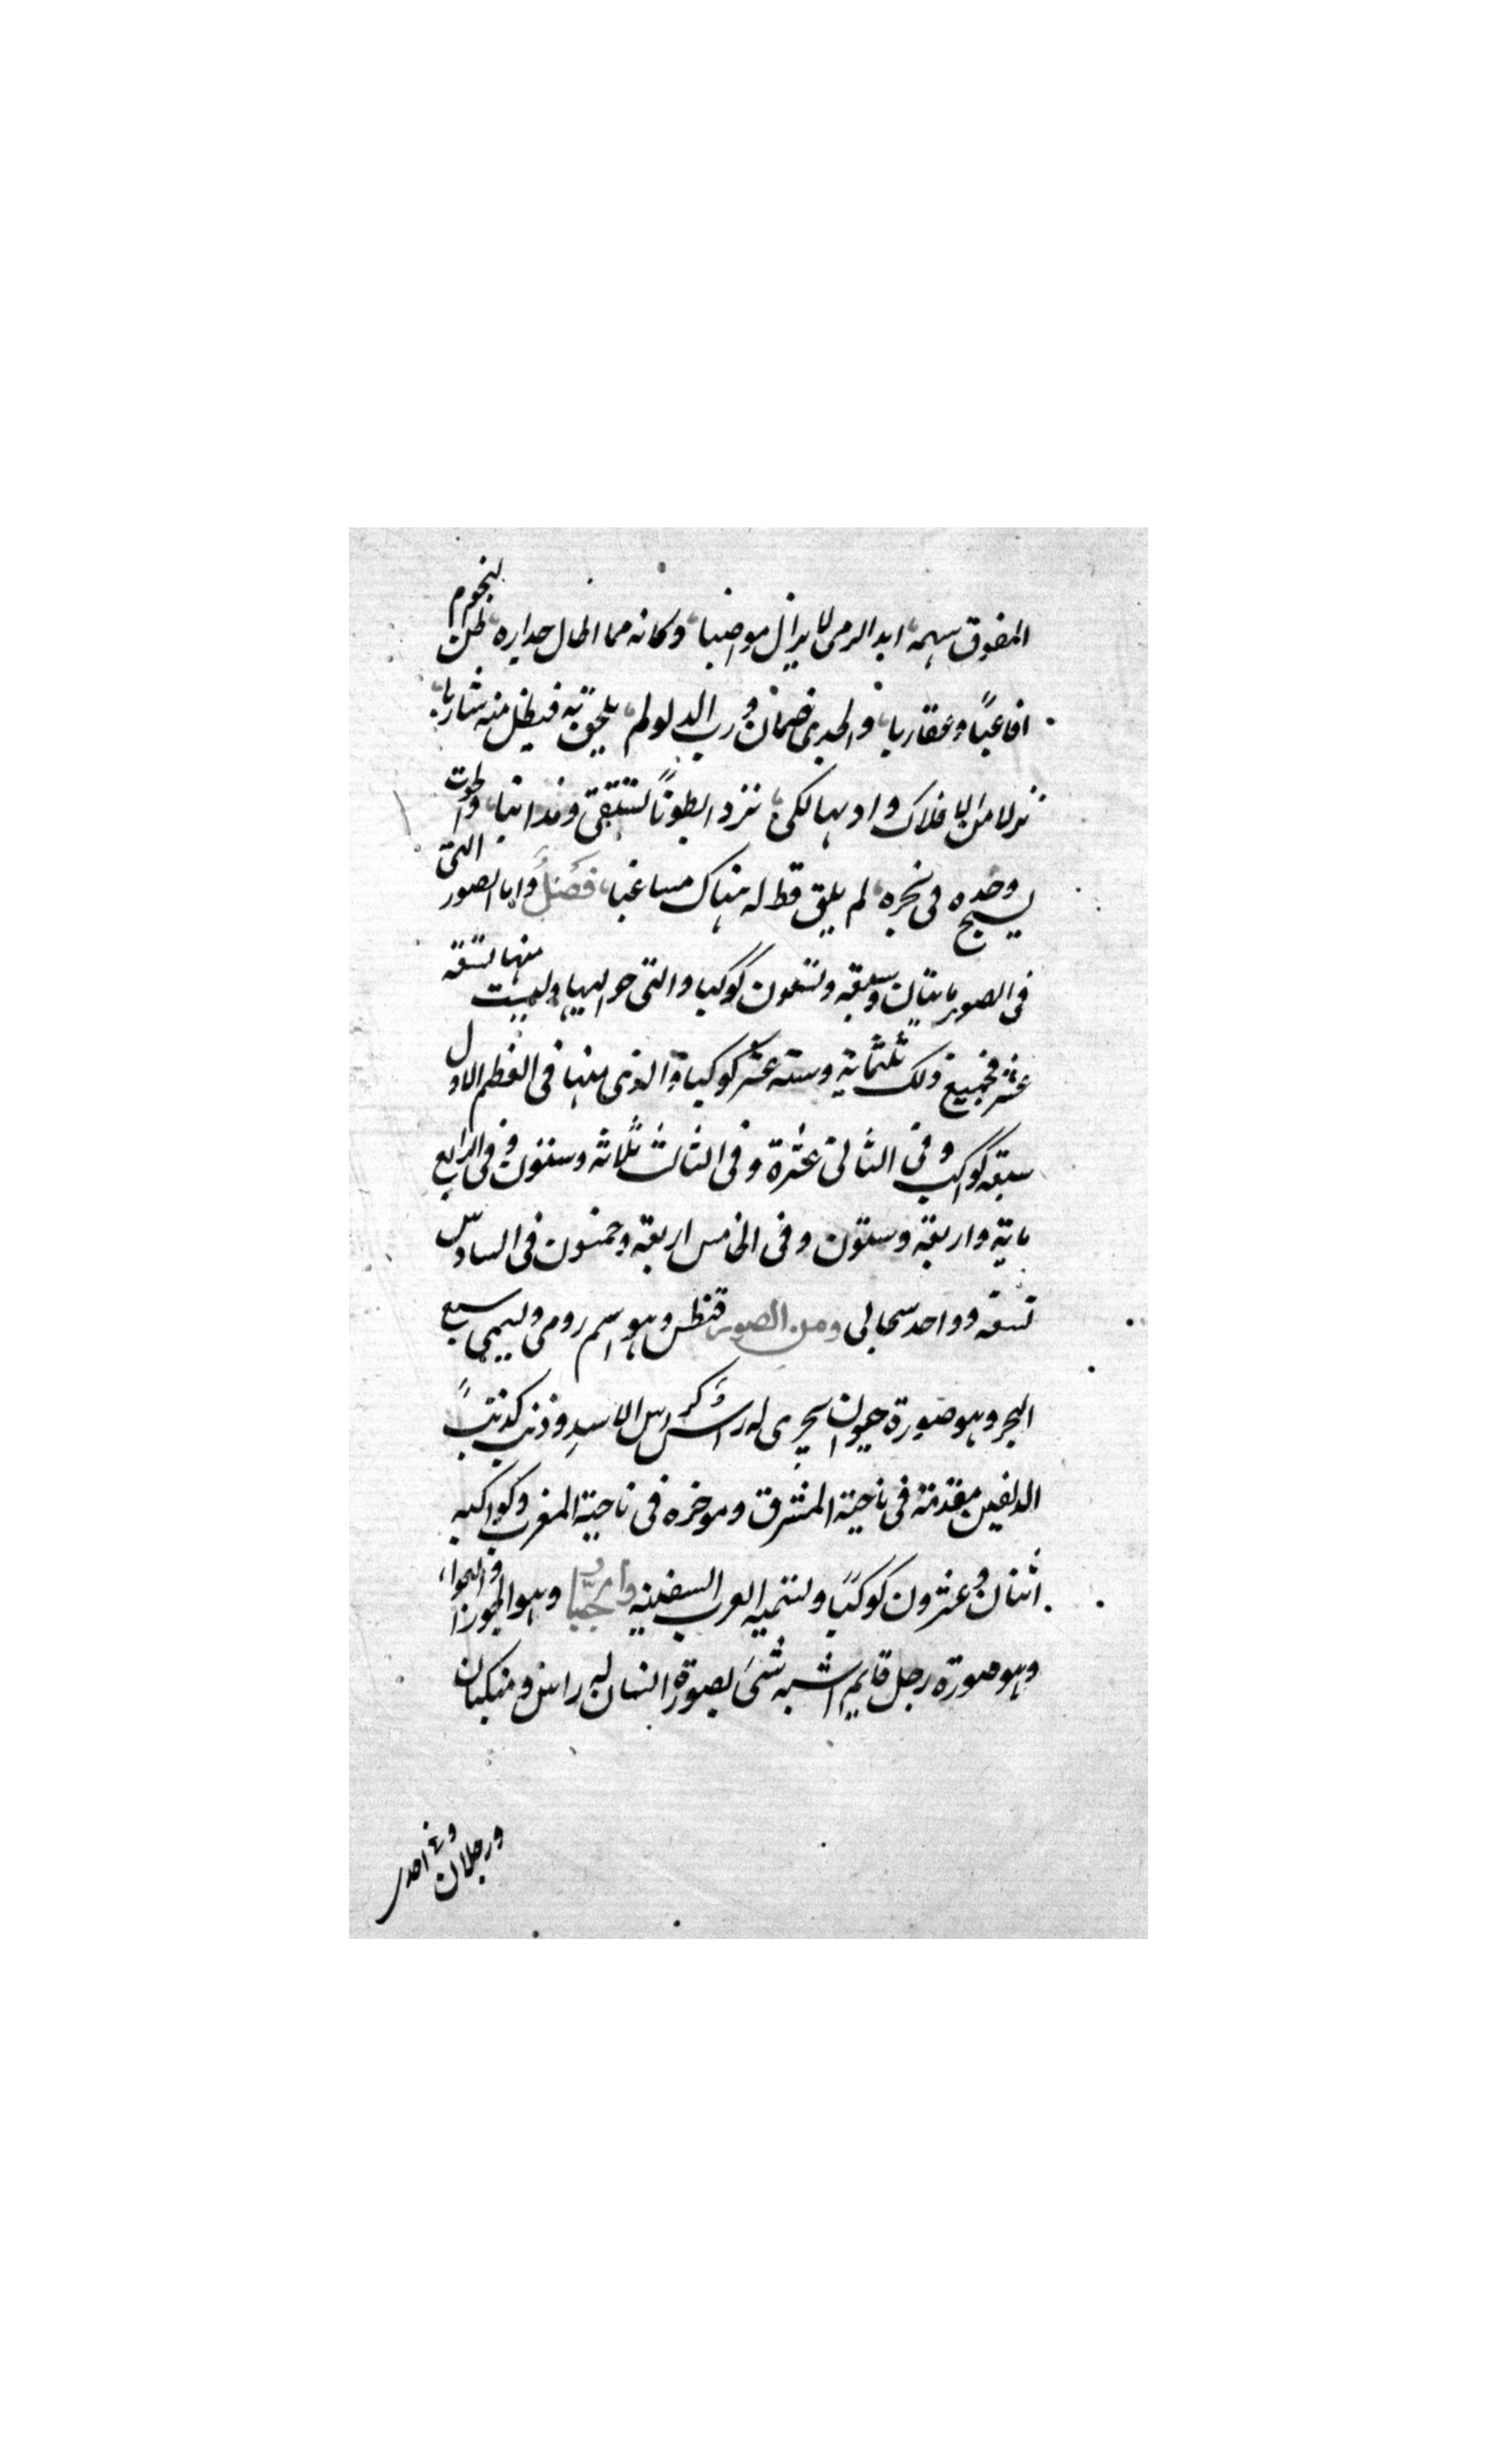 المفوق سهمه ابد الرمى لا يزال مواضبا وكانه مما اطال حداره ظن لنجوم
افاعيًا وعقاربا والجدى ضمان ورب الدلو لم يلحق به فيظل منه شاربا
نزلا من الافلاك وادبها لكى تزداد بطونًا لتستقى ومذانبا والحوت
يسبح وحده فى نحره لم يلق قط له هناك مساغبا فَصْلٌ واما الصور التى
فى الصور مايتان وسبعة وتسعون كوكبا والتى حواليها وليست منها تسعة
عشر فجميع ذلك ثلثماية وستة عشر كوكبا والذى منها فى العظم الاول
سبعة كواكب وفى الثانى عشرة وفى الثالث ثلاثة وستون وفى الرابع
ماية واربعة وستون وفى الخامس اربعة وخمسون فى السادس
تسعة وواحد سحابى ومن الصور قنطس وهو اسم رومى ويسمى سبع
البحر وهو صورة حيوان بحرى له راس كراس الاسد وذنب كذنب
الدلفين مقدمة فى ناحية المشرق وموخره فى ناحية المغرب وكواكبه
اثنان وعشرون كوكبًا وتسميه العرب السفينة والجبار وهو الجوزا والحوا
وهو صورة رجل قايم اشبه شىء بصورة انسان له راس ومنكبان
ورجلان وفى احدى